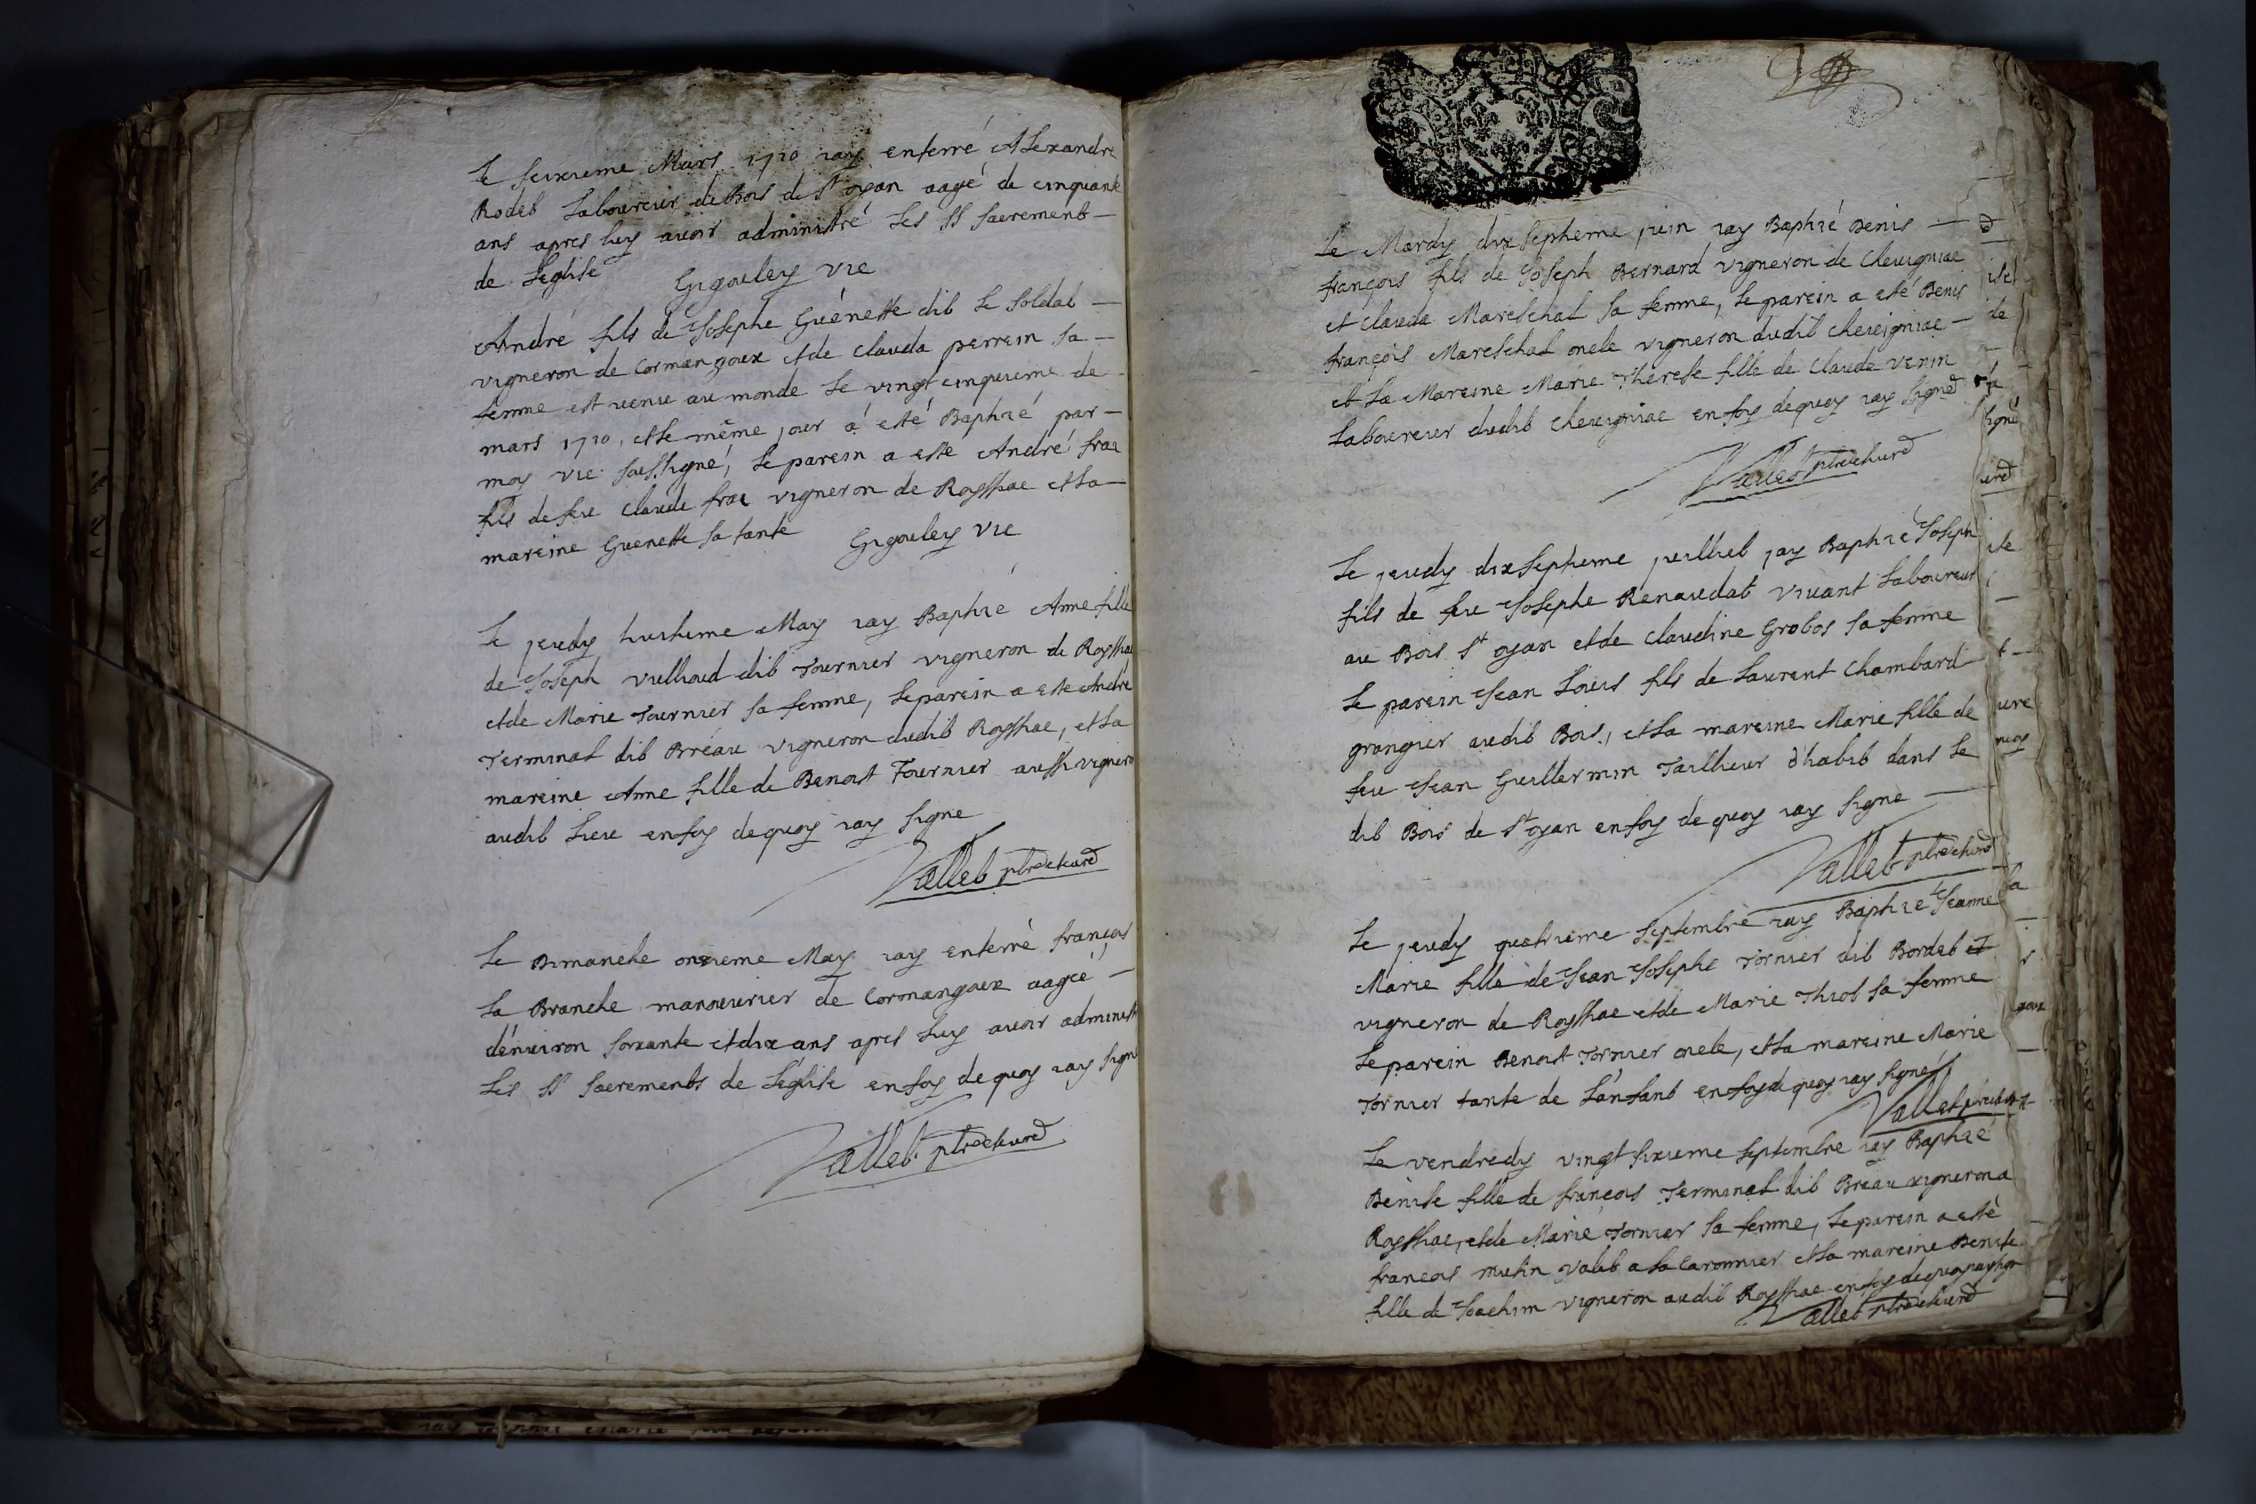 Le seixieme Mars 1710 iay enterré Alexandre
Rodet Laboureur de Bois de St oyan aagé de cinquante
ans apres luy avoir administré Les SS sacrements
de L'eglise Gigouley Vie
André fils de Josephe Guénette dit Le soldat
vigneron de Cormangoux et de Clauda perrein sa
femme est venu au monde Le vingt cinquieme de
mars 1710, et Le même jour á esté Baptizé par
moy vic: soussigné, Le parein a esté André frac
fils de feu Claude frac vigneron de Royssiac et La
mareine Guenette sa tante Gigouley Vic
Le jeudy huitieme May iay Baptizé Anne fille
de Joseph Vullioud dit Tournier vigneron de Royssiac
et de Marie Tournier sa femme, Le parein a esté André
Terminal dit Bréau vigneron dudit Royssiac, et La
mareine Anne fille de Benoist Tournier aussi vigneron
audit Lieu en foy de quoy iay signé
Vallet ptre et curé
Le Dimanche onzieme May iay enterré françois
La Branche manouvrier de Cormangoux aagéé
d'environ soixante et dix ans apres Luy avoir administ
Les SS sacrements de L'églife en foy de quoy iay signé
Vallet ptre et curé
Le Mardy dix septieme juin iay Baptizé Denis
françois fils de Joseph Bernard vigneron de Chevigniac
et Clauda Mareschal sa femme, Le parein a esté Denis
françois Mareschal oncle vigneron dudit Chevigniac
et La Mareine Marie Therese fille de Claude Venin
Laboureur dudit Chevigniac en foy de quoy iay signé
Vallet ptre et curé
Le jeudy dix septieme juilliet jay Baptizé Joseph
fils de feu Josephe Renaudat vivant Laboureur
au Bois St oyan et de Claudine Grobos sa femme
Le parein Jean Louis fils de Laurent Chambard
grangier audit Bois, et La mareine Marie fille de
feu Jean Guillermin Taillieur d'habit dans Le
dit Bois de St oyan en foy de quoy iay signé
Vallet ptre et curé
Le jeudy quatrieme septembre iay Baptizé Jeanne
Marie fille de Jean Josephe Tornier dit Bordet et
vigneron de Royssiac et de Marie Thiot sa femme
Le parein Benoist Tornier oncle, et La mareine Marie
Tornier tante de L'enfant en foy de quoy iay signé
Vallet ptre et curé
Le vendredy vingt sixieme septembre iay Baptizé
Bénite fille de françois Terminal dit Breau vigneron a
Royssiac, et de Marie Tornier sa femme, Le parein a esté
francois mutin valet a La Caronnier et La mareine Benite
fille de Joachim vigneron audit Royssiac en foy de quoy iay signé
Vallet ptre et curé